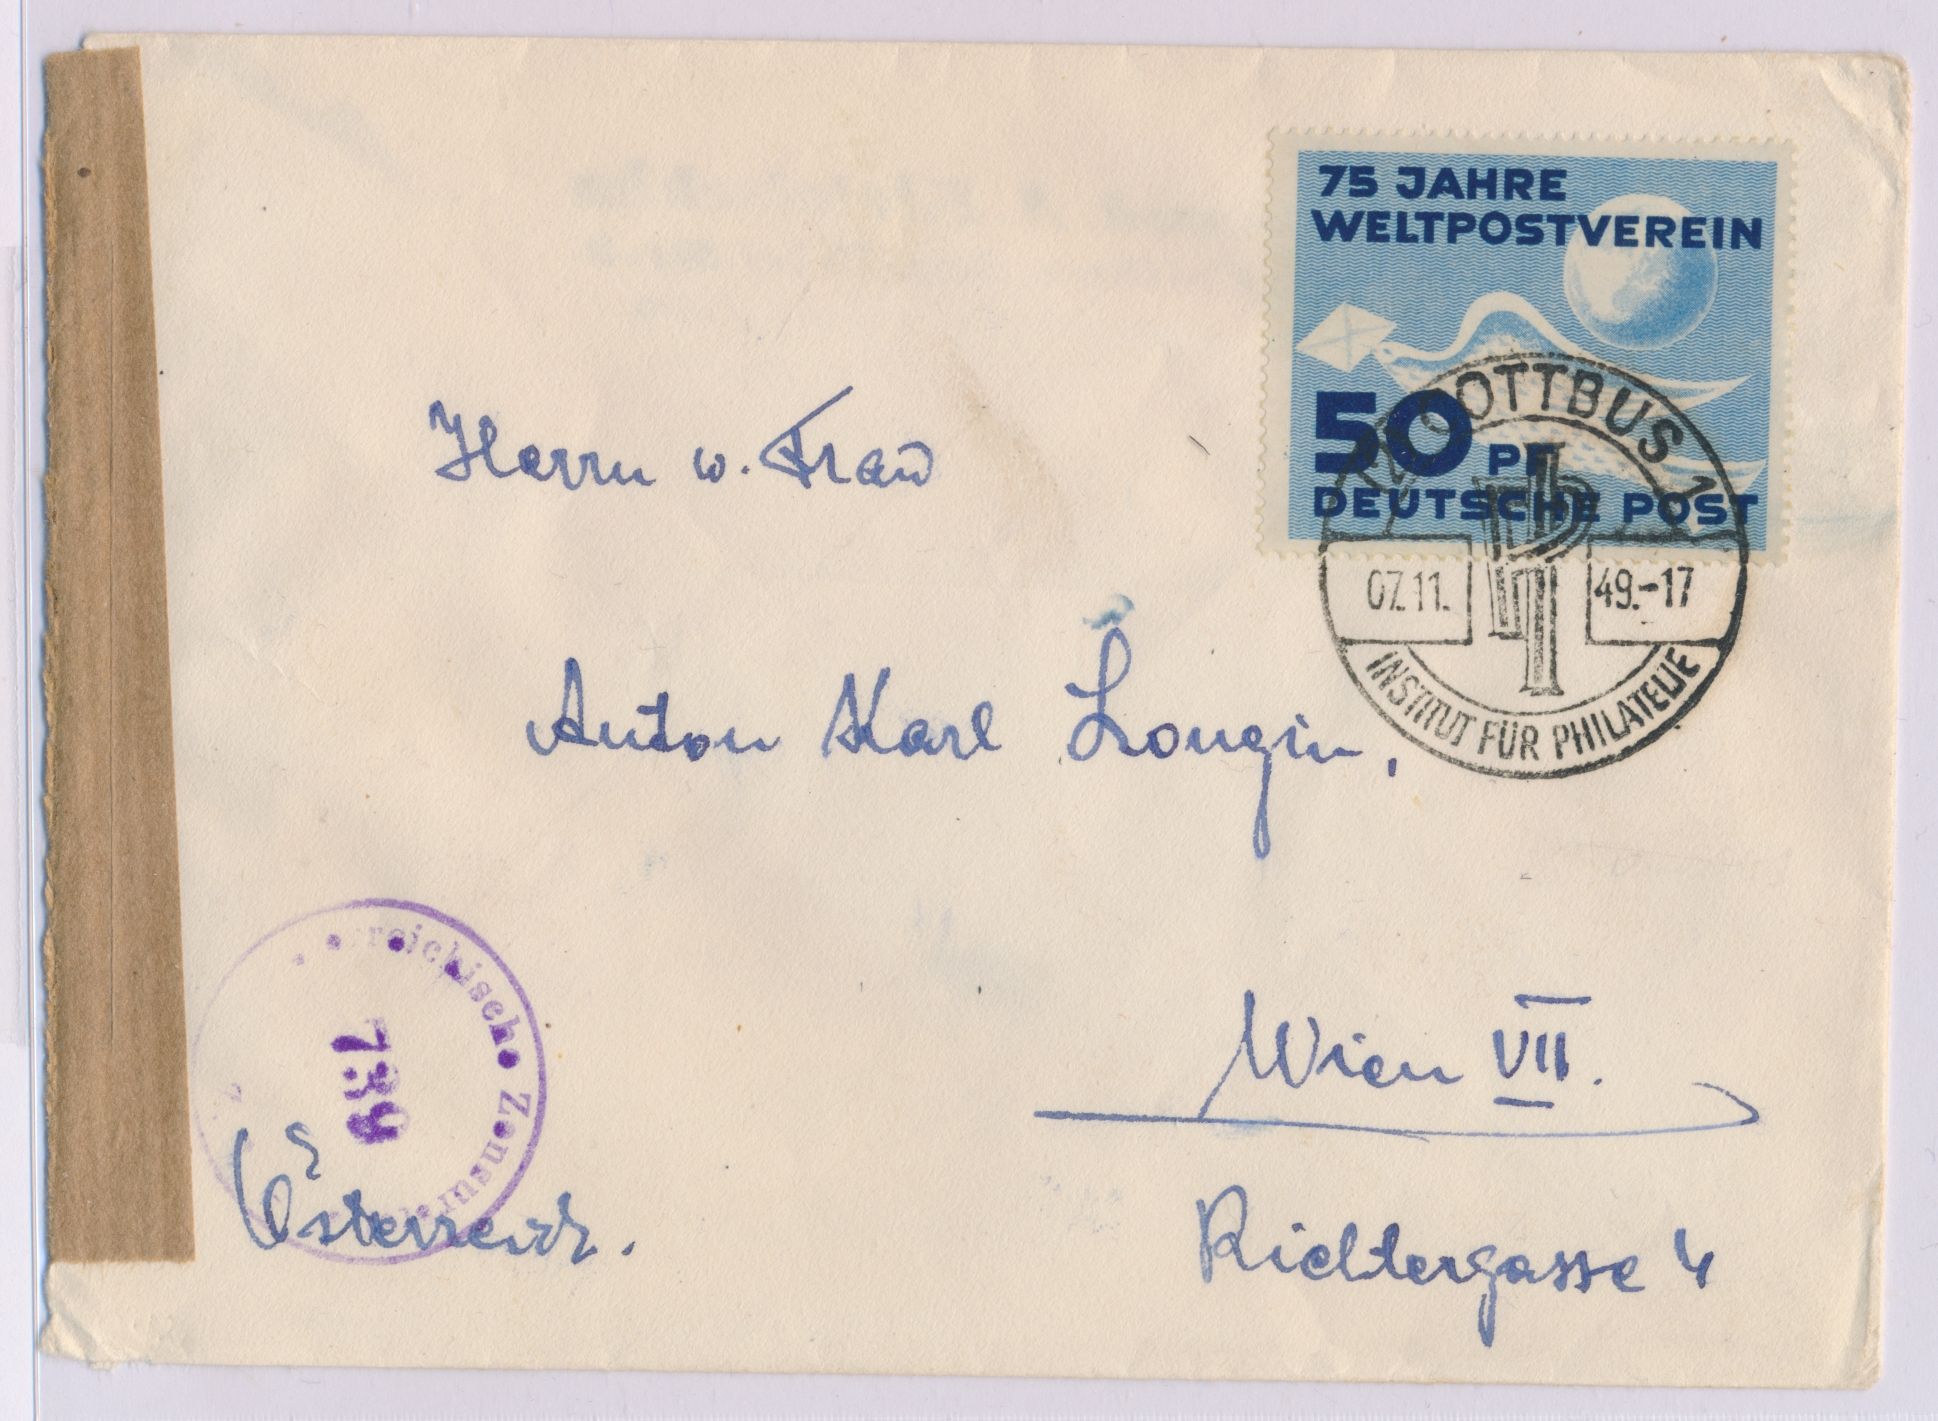 75 JAHRE
WELTPOSTVEREIN
50 PF
DEUTSCHE POST
COTTBUS 1
07.11. 49.-17
INSTITUT FÜR PHILATELIE
Herrn u. Frau
Anton Karl Longin,
Wien VII.
Richtergasse 4
reichische Zensur
739
Österreich.